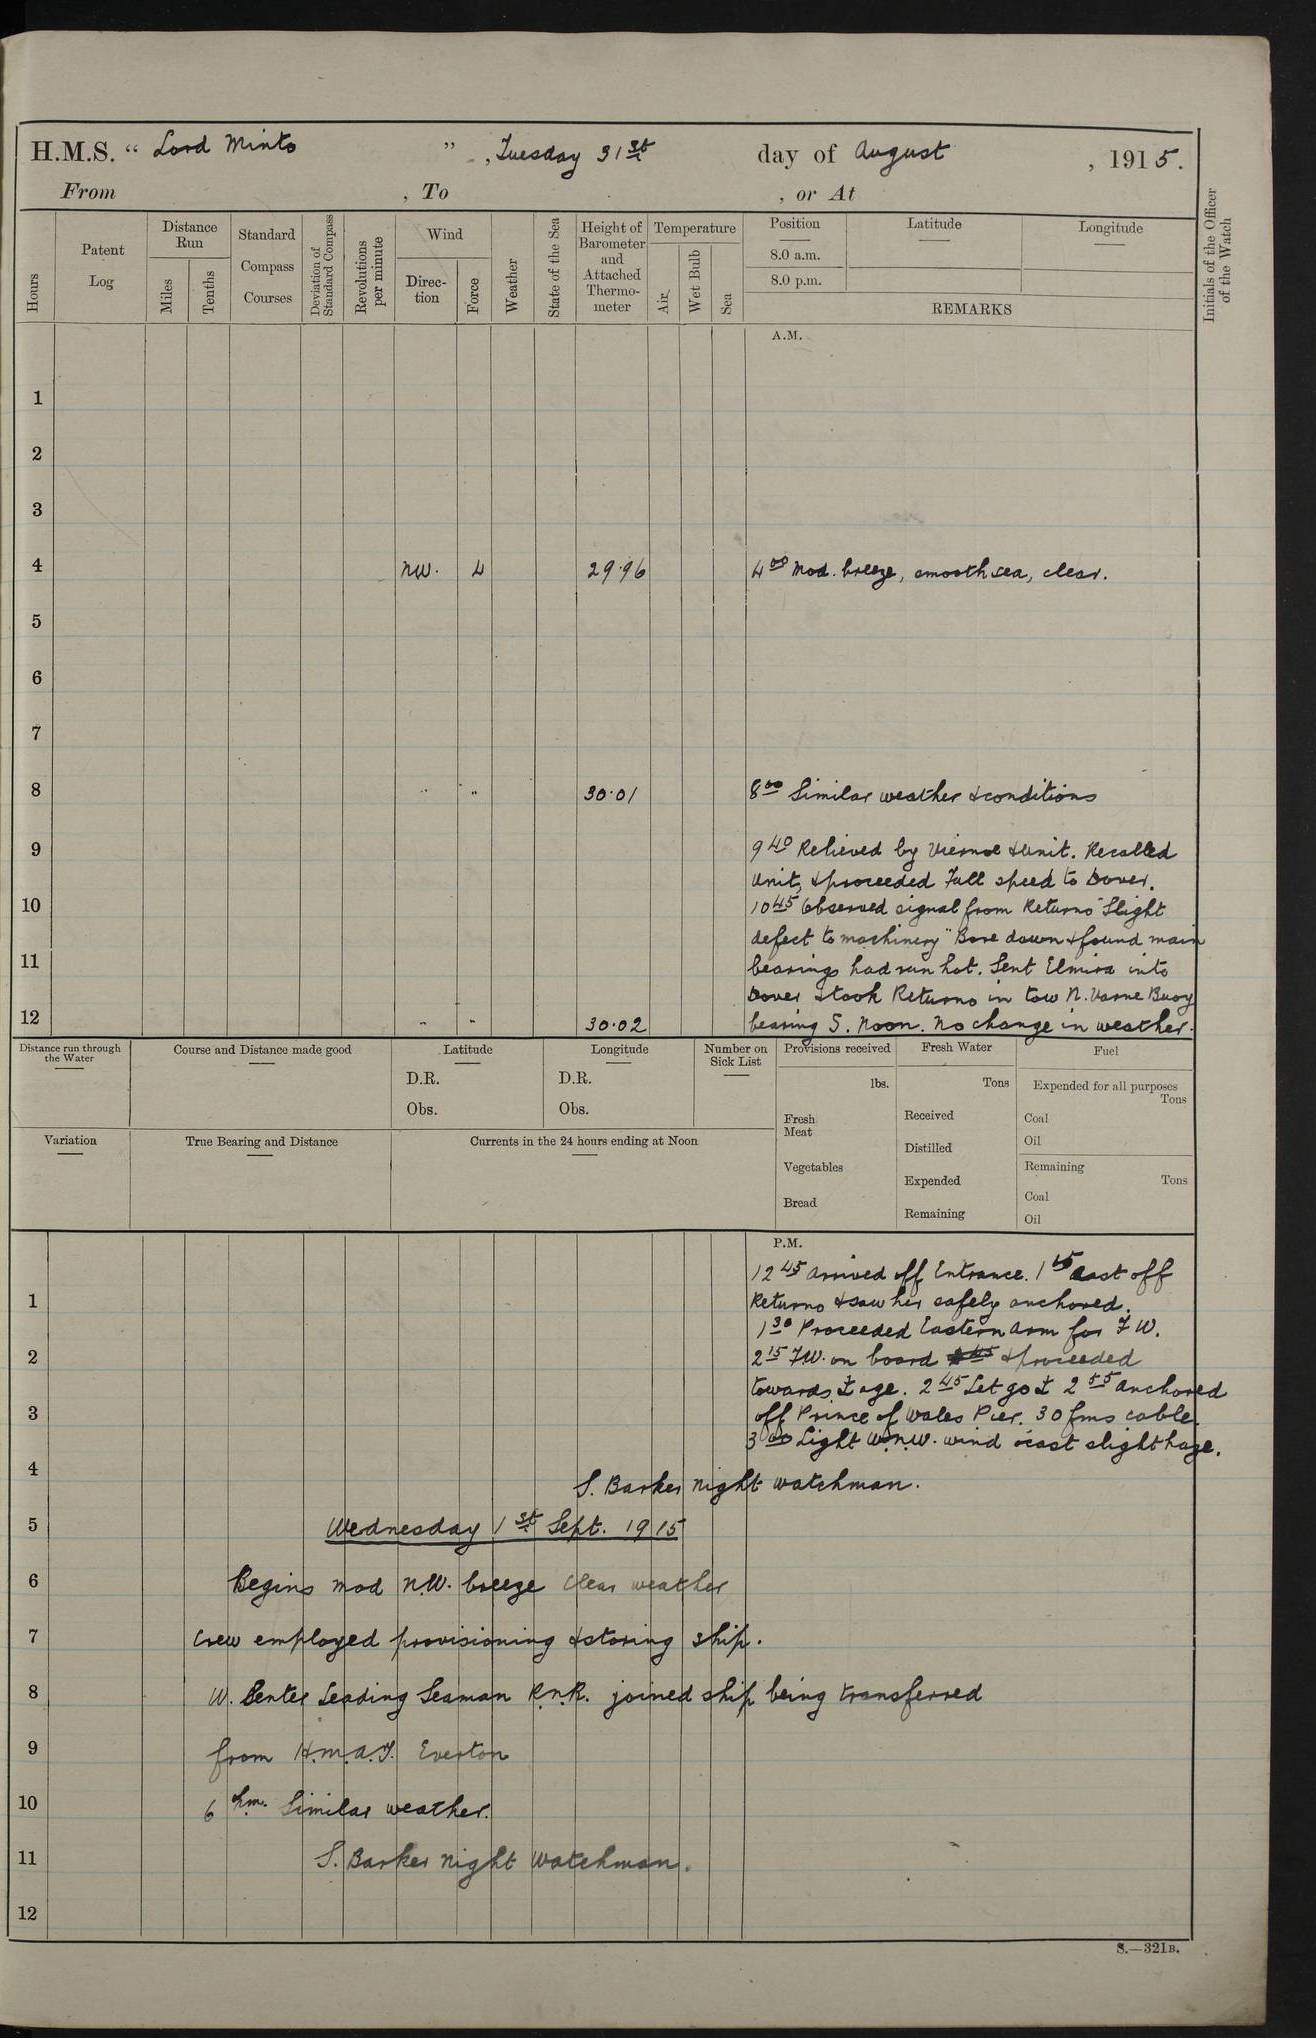 H.M.S. “ Lord Minto ” , Tuesday 31st day of August , 1915.
From , To , or At
Hours
Patent Log
Distance Run
Miles
Tenths
Standard Compass Courses
Deviation of Standard Compass
Revolutions per minute
Wind
Direc-tion
Force
Weather
State of the Sea
Height of Barometer and Attached Thermo-meter
Temperature
Air
Wet Bulb
Sea
Position
Latitude
Longitude
8.0 a.m.
8.0 p.m.
REMARKS
Initials of the Officer of the Watch
A.M.
1
2
3
4 NW. 4 29.96 4 00 Mod. breeze, smooth sea, clear.
5
6
7
8 " " 30.01 8 00 Similar weather & conditions
9 9 40 Relieved by & Unit. Recalled
Unit, & proceeded Full speed to Dover.
10 10 45 Observed signal from Returno "Slight
defect to machinery" Bore down & found main
11 bearings had run hot. Sent Elmira into
Dover & took Returno in tow N. Varne Buoy
12 " " 30.02 bearing S. Noon. No change in weather.
Distance run through the Water
Course and Distance made good
Latitude
D.R.
Obs.
Longitude
D.R.
Obs.
Number on Sick List
Provisions received
lbs.
Fresh Meat
Vegetables
Bread
Fresh Water
Tons
Received
Distilled
Expended
Remaining
Fuel
Expended for all purposes
Tons
Coal
Oil
Remaining
Tons
Coal
Oil
Variation
True Bearing and Distance
Currents in the 24 hours ending at Noon
P.M.
12 45 Arrived off Entrance. 1 15 Cast off
1 Returno & saw her safely anchored.
1 30 Proceeded Eastern Arm for F.W.
2 2 15 F.W. on board & proceeded
towards ⚓age. 2 45 Let go ⚓ 2 55 Anchored
3 off Prince of Wales Pier. 30 fms cable.
3 00 Light W.N.W. wind o'cast slight haze.
4 S. Barker night watchman.
5 Wednesday 1st Sept. 1915
6 Begins mod N.W. breeze clear weather
7 Crew employed provisioning & storing ship.
8 W. Leading Seaman R.N.R. joined ship being transferred
9 from H.M.A.T. Everton
10 6 p.m. Similar weather.
11 S. Barker night watchman.
12
S.—321B.